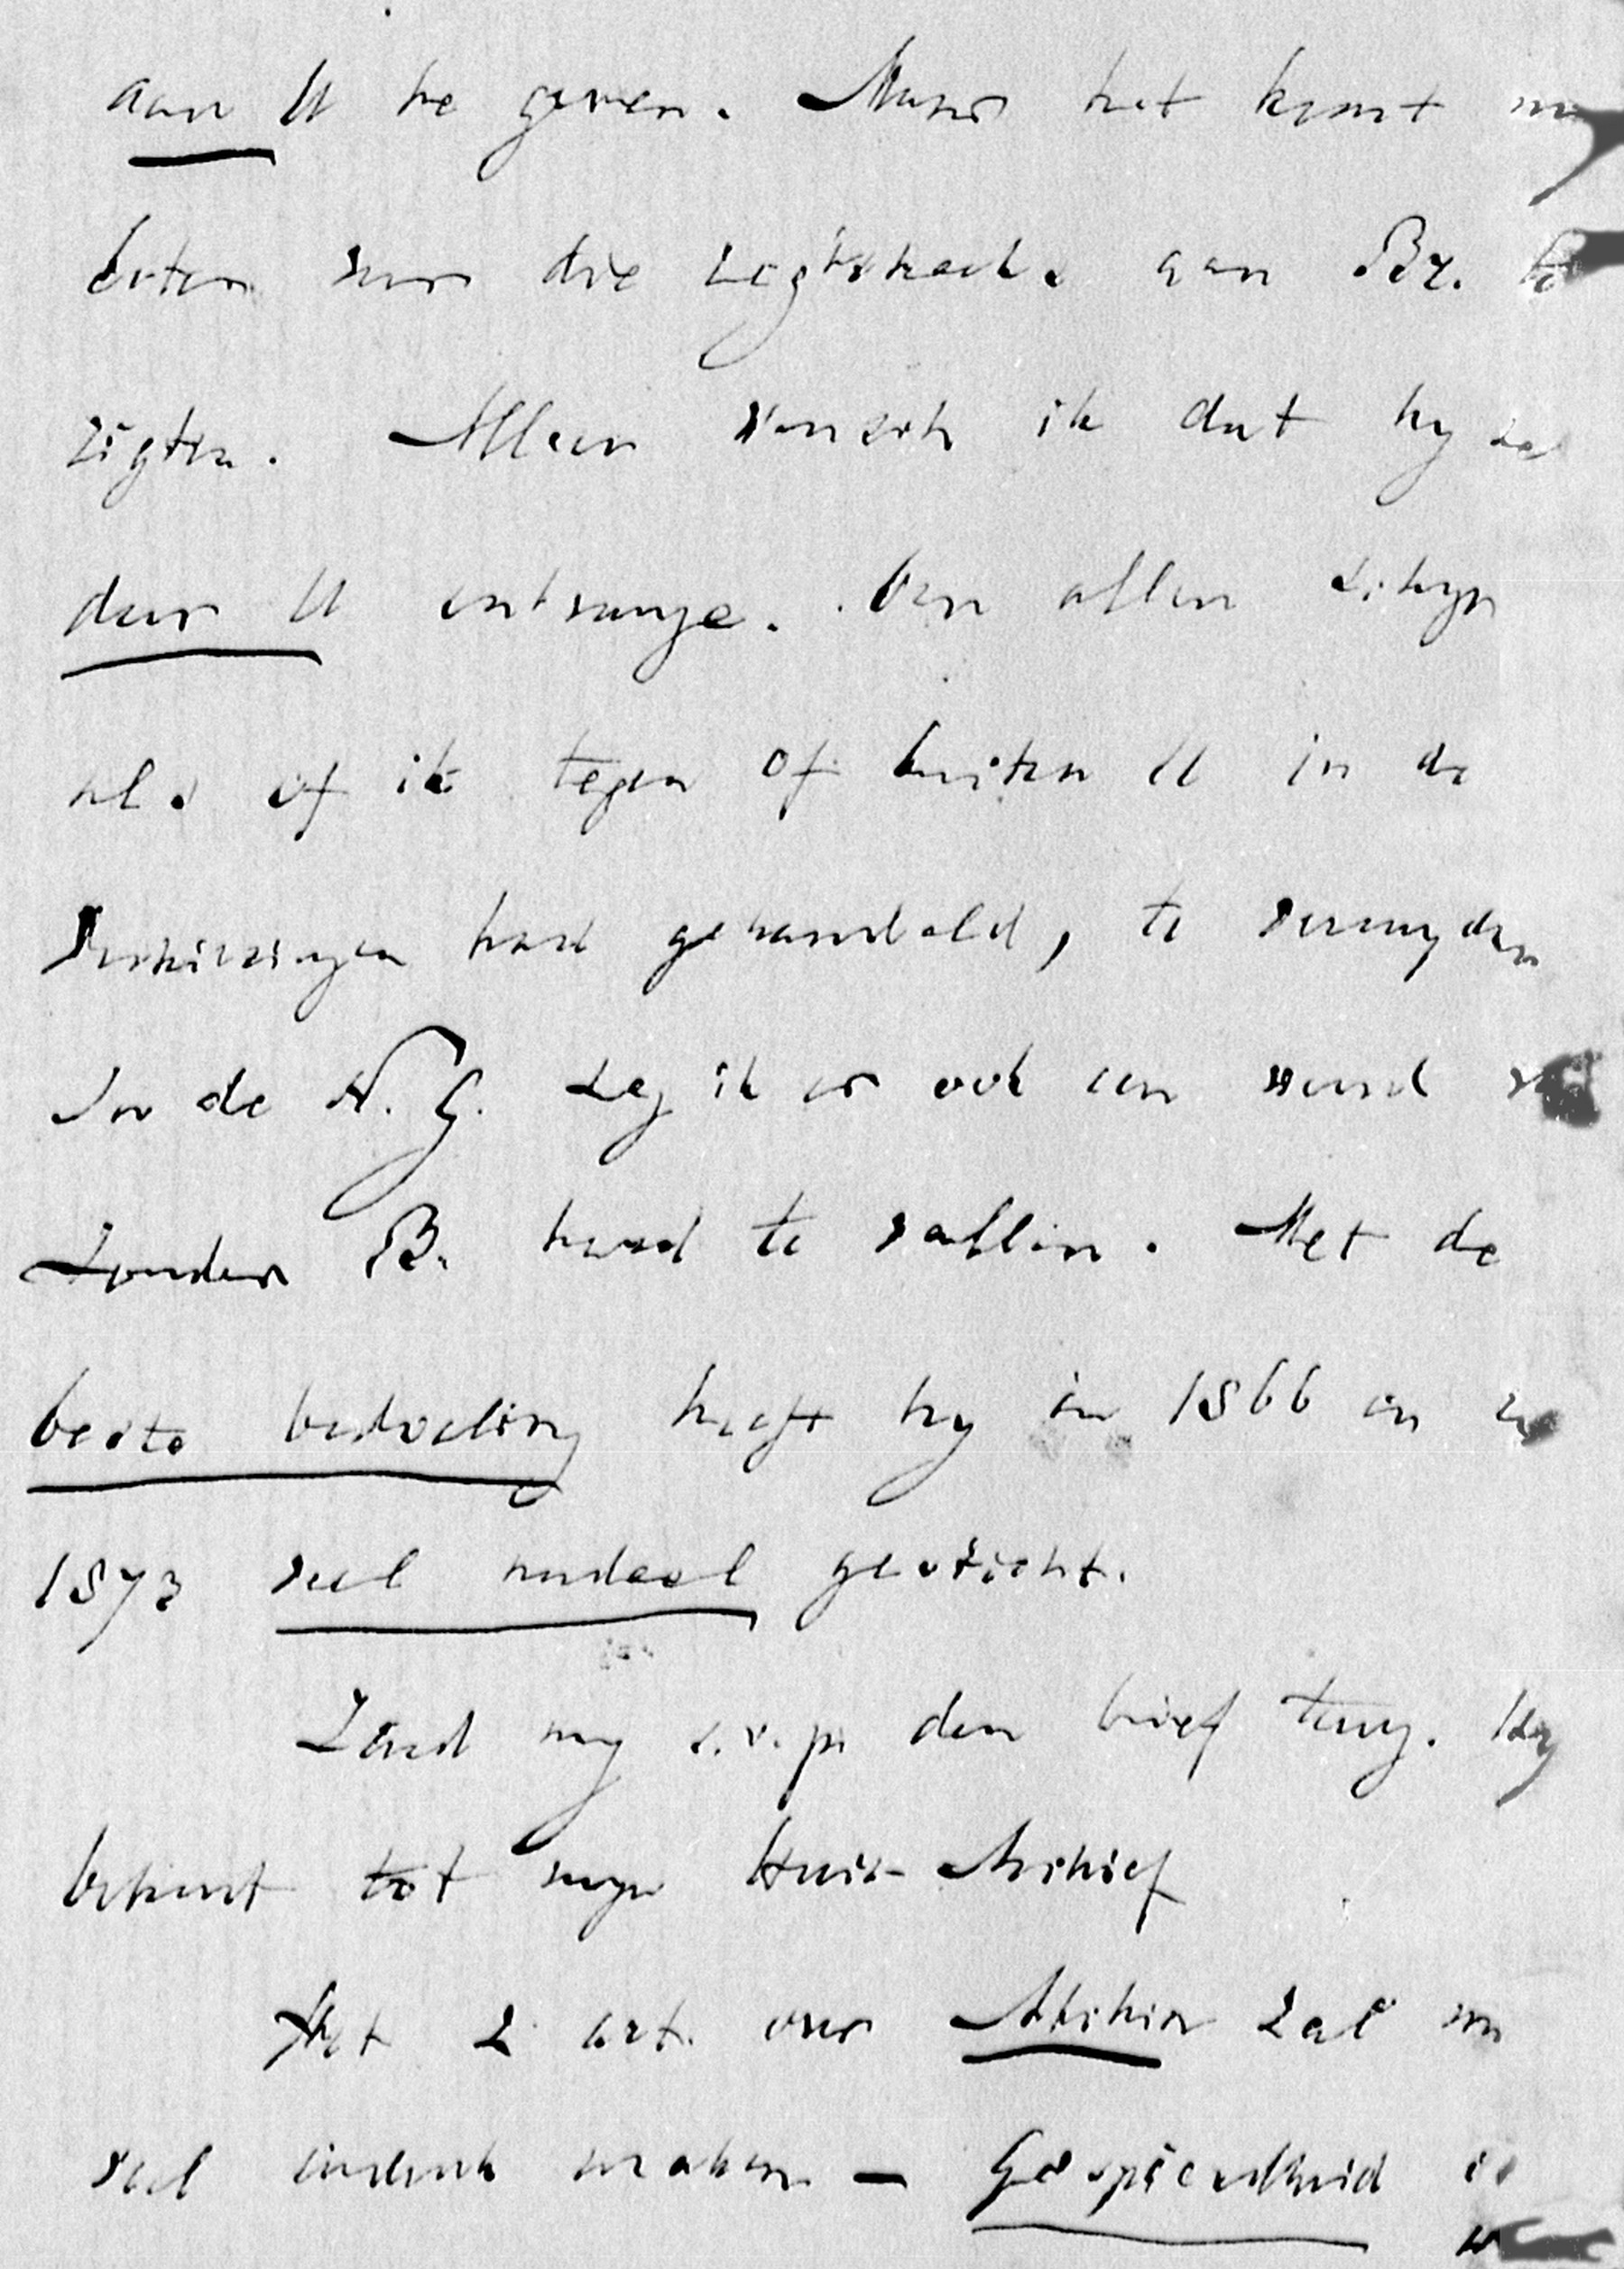 aan U te geven. Maar het komt
beter voor die regtstreeks aan Bz. te
rigten. Alleen wensch ik dat hy ze
door U ontvange. Om allen schyn
als of ik tegen of buiten U in de
verkiezingen had gehandeld, te vermyden
In de N. G. zeg ik er ook een woord
zonder B. hard te vallen. Met de
beste bedoeling heeft hy in 1866 en
1873 veel nadeel gesticht.
Zend my s.v.p. den brief terug. Hy
behoort tot myn Huis-Archief
Het 2 art. over Atchin zal
veel indruk maken — Gespierdheid is